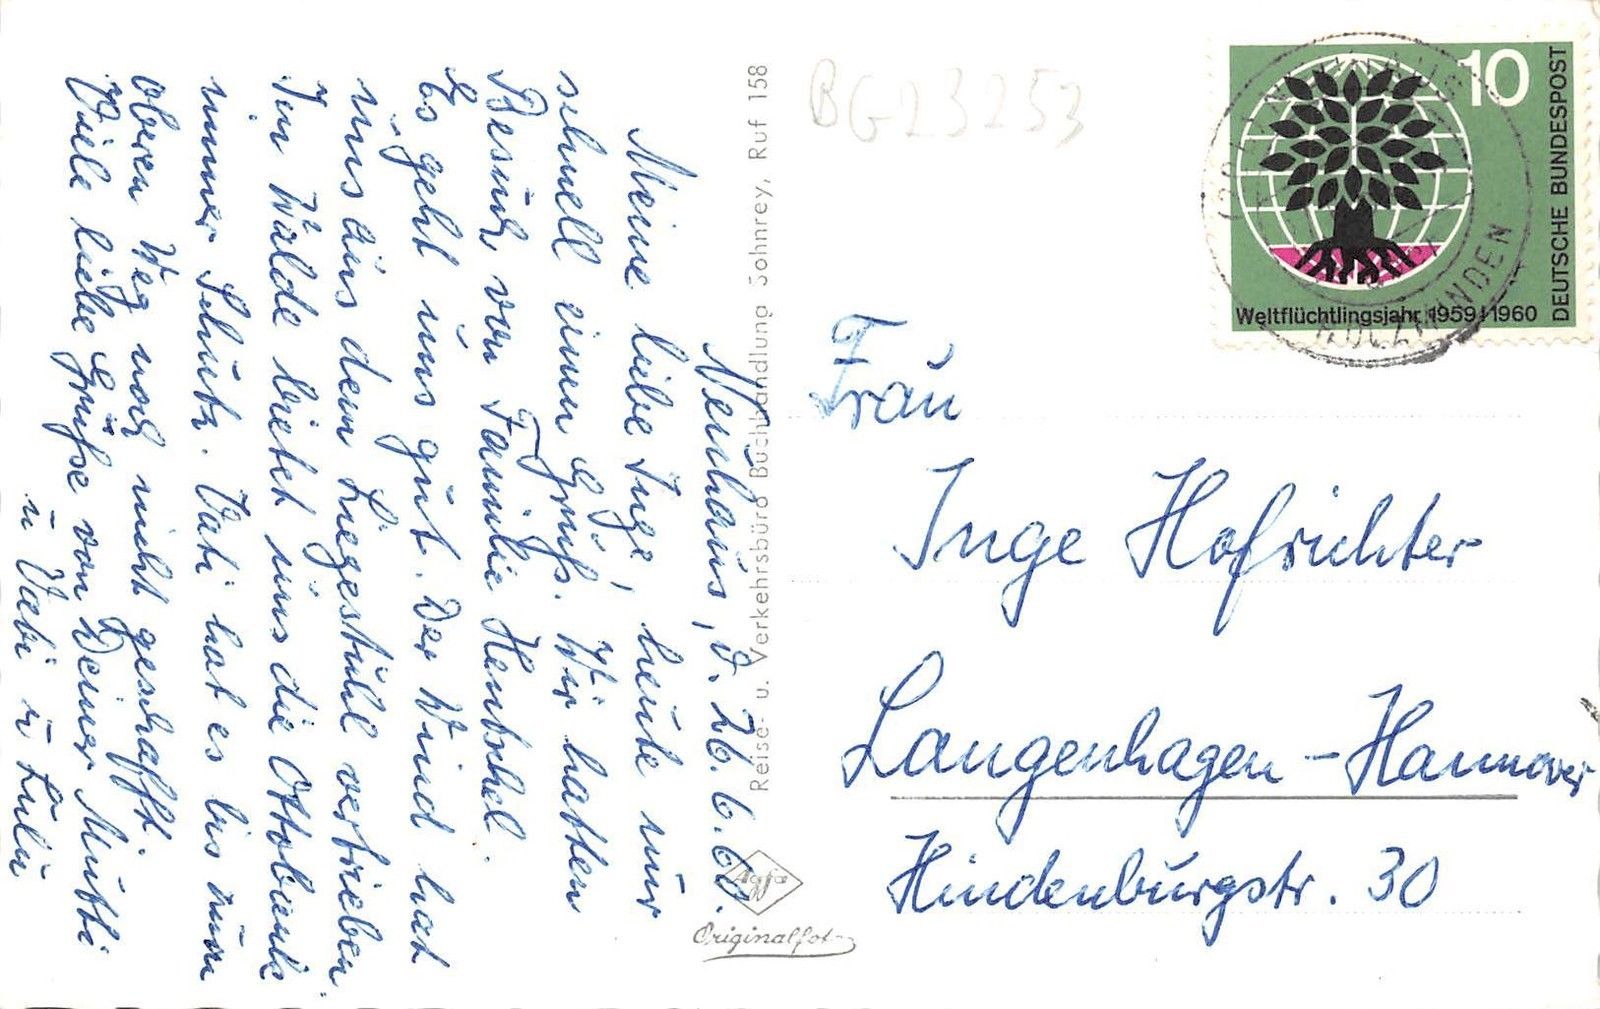 Neuhaus, d. 26.6.60.
Meine liebe Inge, heute nur
schnell einen Gruß. Wir hatten
Besuch, von Familie Hentschel.
Es geht uns gut. Der Wind hat
uns aus dem Liegestuhl vertrieben.
Im Walde bietet uns die Ottobank
immer Schutz. Vati hat es bis zum
oberen Weg noch nicht geschafft.
Viele liebe Grüße von Deiner Mutti
u Vati u Lulu
Reise- u. Verkehrsbüro Buchhandlung Sohnrey, Ruf 158
Agfa
Originalfoto
BG23253
10
DEUTSCHE BUNDESPOST
Weltflüchtlingsjahr 1959/1960
NEUHAUS
HOLZMINDEN
Frau
Inge Hofrichter
Langenhagen-Hannover
Hindenburgstr. 30